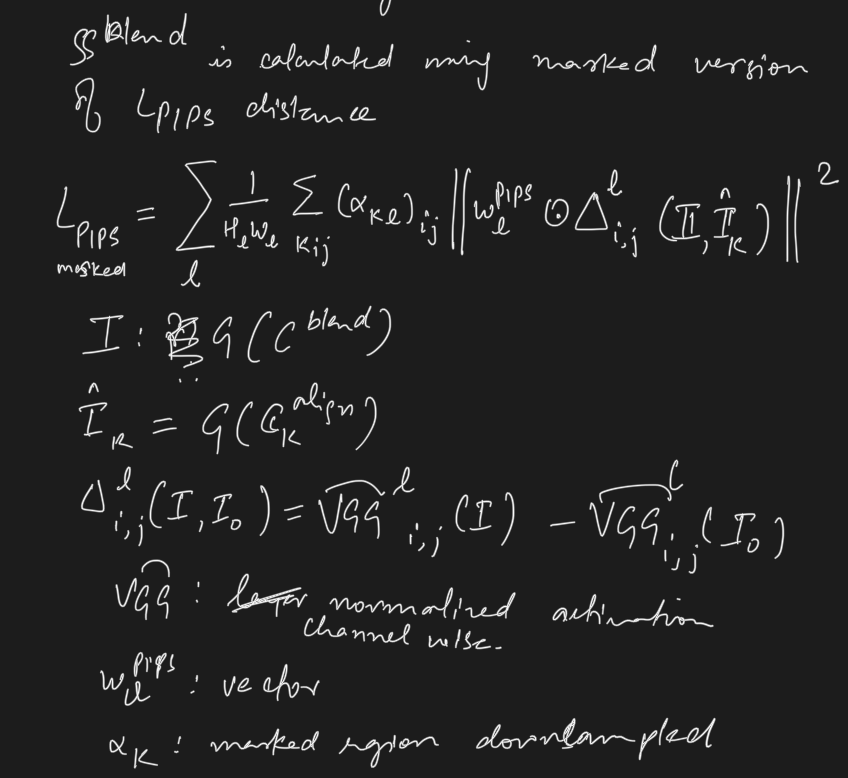 L^blend is calculated using masked version
of L_PIPS distance
L_PIPS masked = ∑_l 1/(H_l W_l) ∑_kij (α_kl)_ij ‖ w_l^pips ⊙ Δ^l_i,j (I, Î_K) ‖²
I : G(C^blend)
Î_k = G(C_k^align)
Δ^l_i,j (I, I_0) = V͡GG^l_i,j (I) − V͡GG^l_i,j (I_0)
VG͡G : normalized activation
channel wise.
w_l^pips : vector
α_k : masked region downsampled